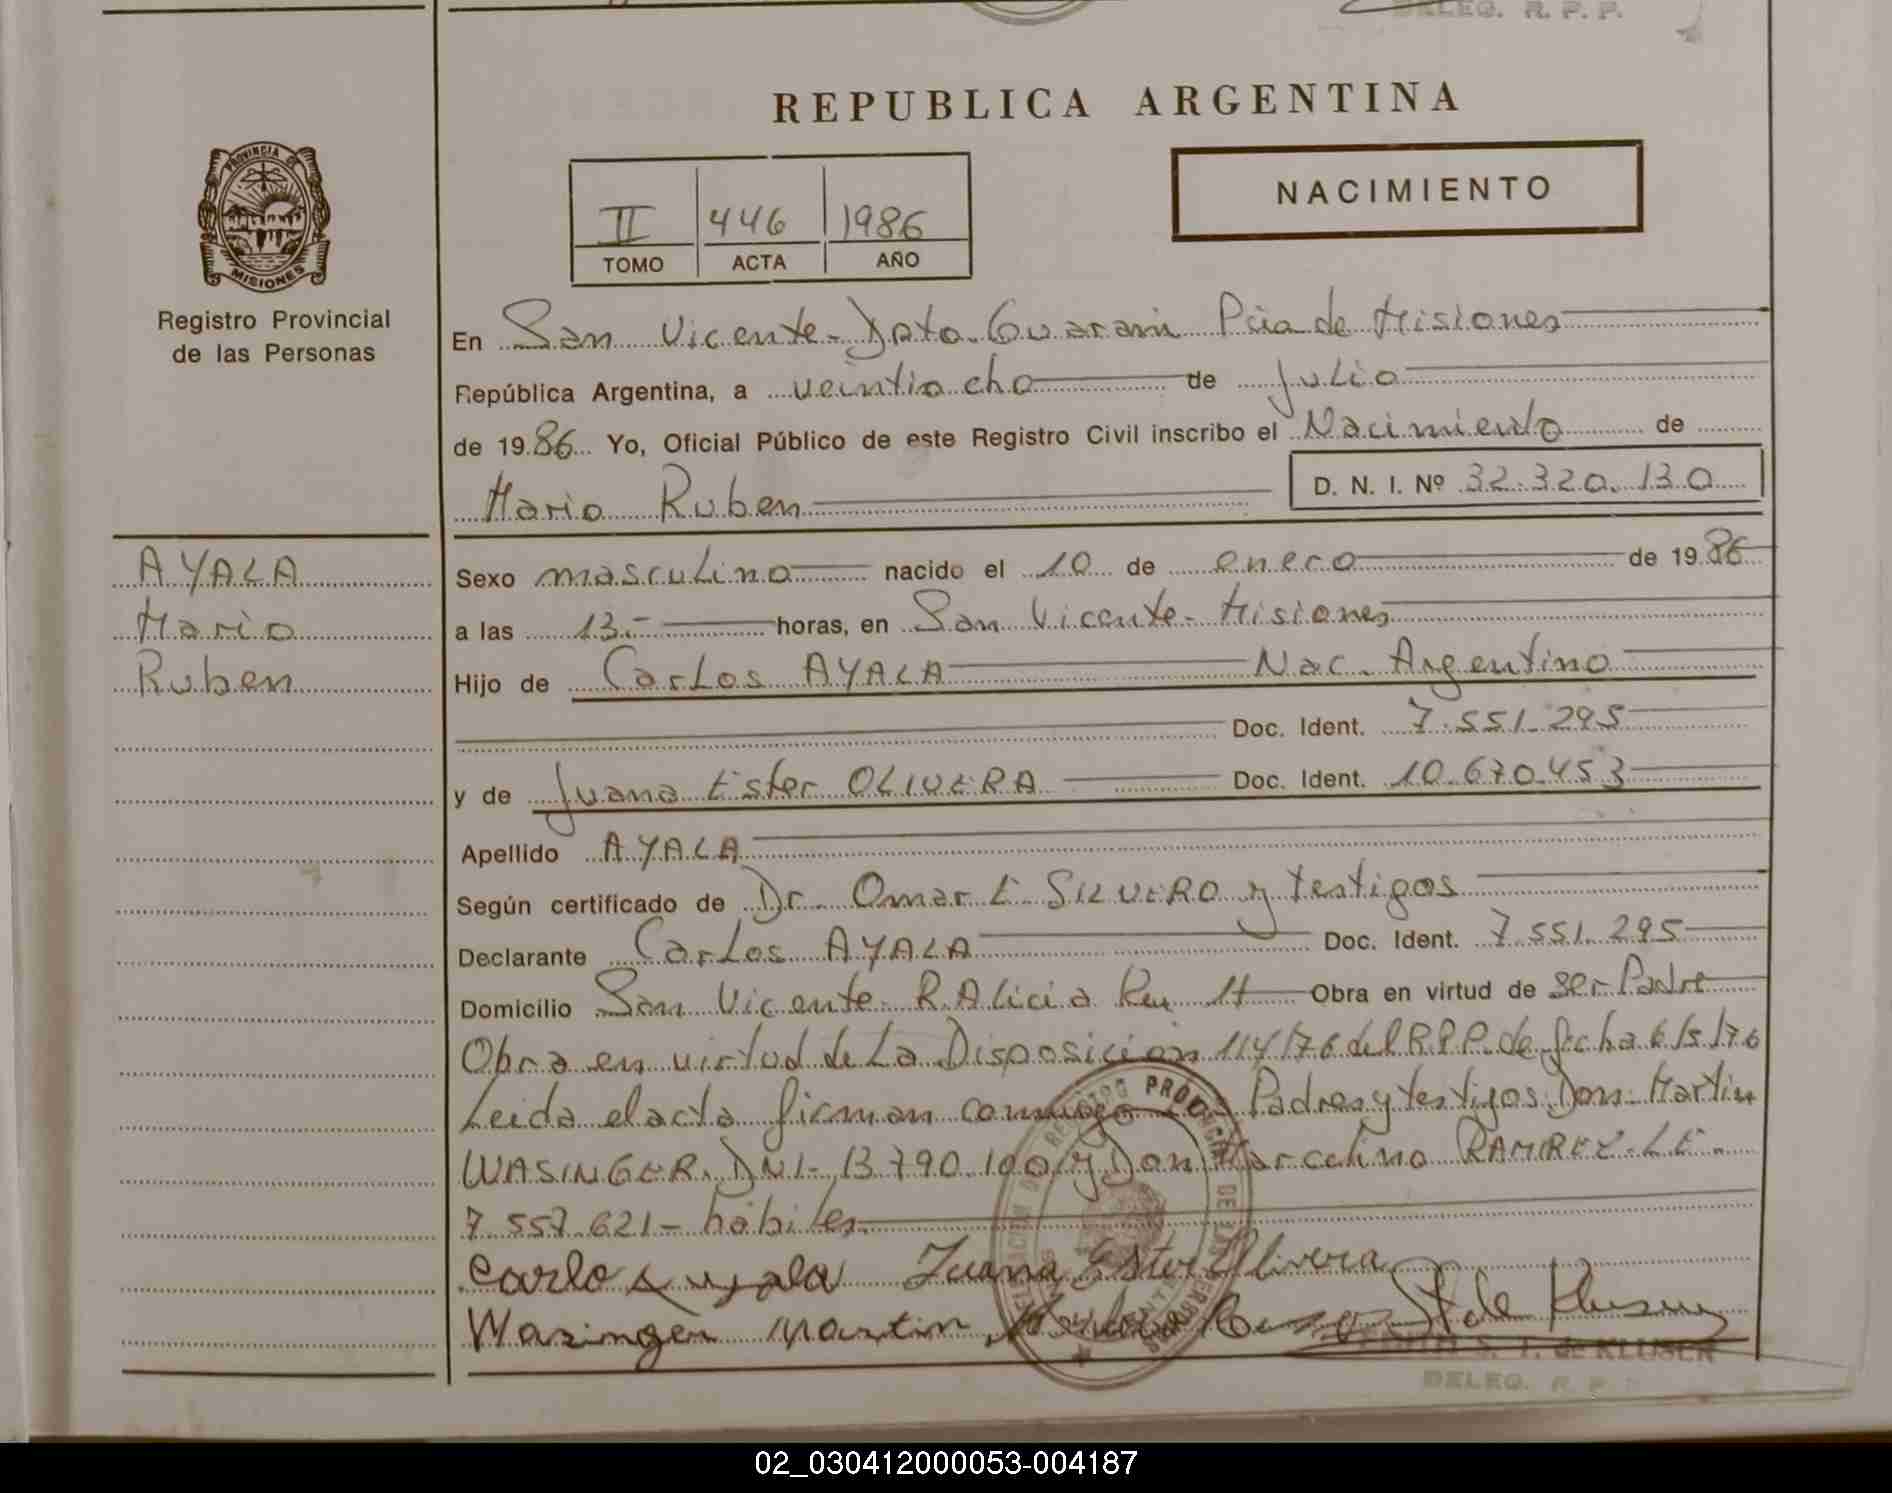 DELEG. R. P. P.
REPUBLICA ARGENTINA
NACIMIENTO
II 446 1986
TOMO ACTA AÑO
PROVINCIA DE
MISIONES
Registro Provincial
de las Personas
En San Vicente - Dpto. Guarani Pcia de Misiones
República Argentina, a veintiocho de Julio
de 1986 Yo, Oficial Público de este Registro Civil inscribo el Nacimiento de
Mario Ruben D. N. I. Nº 32.320.130
AYALA
Mario
Ruben
Sexo masculino nacido el 10 de enero de 1986
a las 13.- horas, en San Vicente - Misiones
Hijo de Carlos AYALA Nac. Argentino
Doc. Ident. 7.551.295
y de Juana Ester OLIVERA Doc. Ident. 10.670.453
Apellido AYALA
Según certificado de Dr. Omar E SILVERO y testigos
Declarante Carlos AYALA Doc. Ident. 7.551.295
Domicilio San Vicente - R. Alicia Km 11 Obra en virtud de ser Padre
Obra en virtud de La Disposicion 114/76 del R.P.P. de fecha 6/5/76
Leida el acta firman conmigo Los Padres y testigos Don Martin
WASINGER. DNI- 13.790.100 y Don Marcelino RAMIREZ - L.E.-
7.557.621 - habiles
Carlos Ayala Juana Ester Olivera
Wasinger Martin
S. T. de KLUSER
DELEG. R. P.
02_030412000053-004187